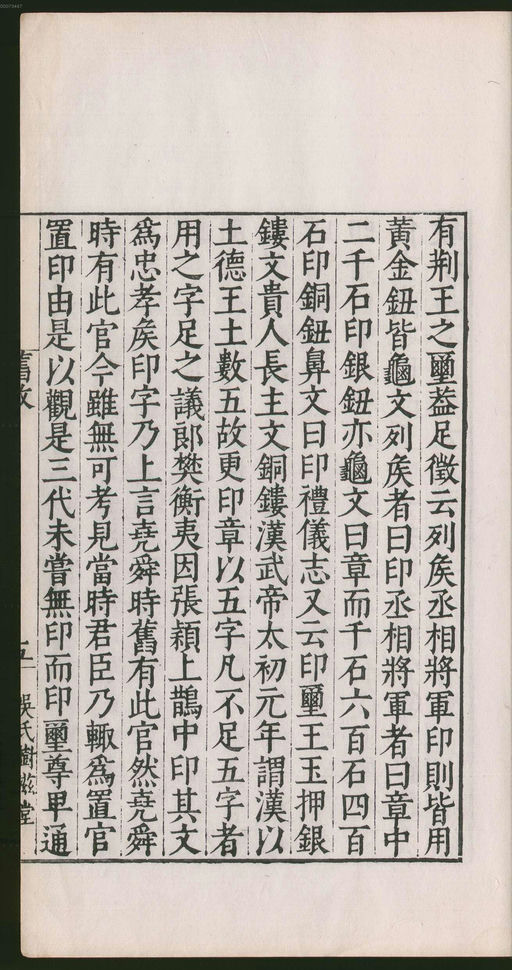 有荆王之璽葢足徵云列矦丞相將軍印則皆用
黃金鈕皆龜文列矦者曰印丞相將軍者曰章中
二千石印銀鈕亦龜文曰章而千石六百石四百
石印銅鈕鼻文曰印禮儀志又云印璽王玉押銀
鏤文貴人長主文銅鏤漢武帝太初元年謂漢以
土德王土數五故更印章以五字凡不足五字者
用之字足之議郞樊衡夷因張顥上鵲中印其文
爲忠孝矦印字乃上言堯舜時舊有此官然堯舜
時有此官今雖無可考見當時君臣乃輙爲置官
置印由是以觀是三代未嘗無印而印璽尊卑通
舊文
五
吳氏樹滋堂
00073447